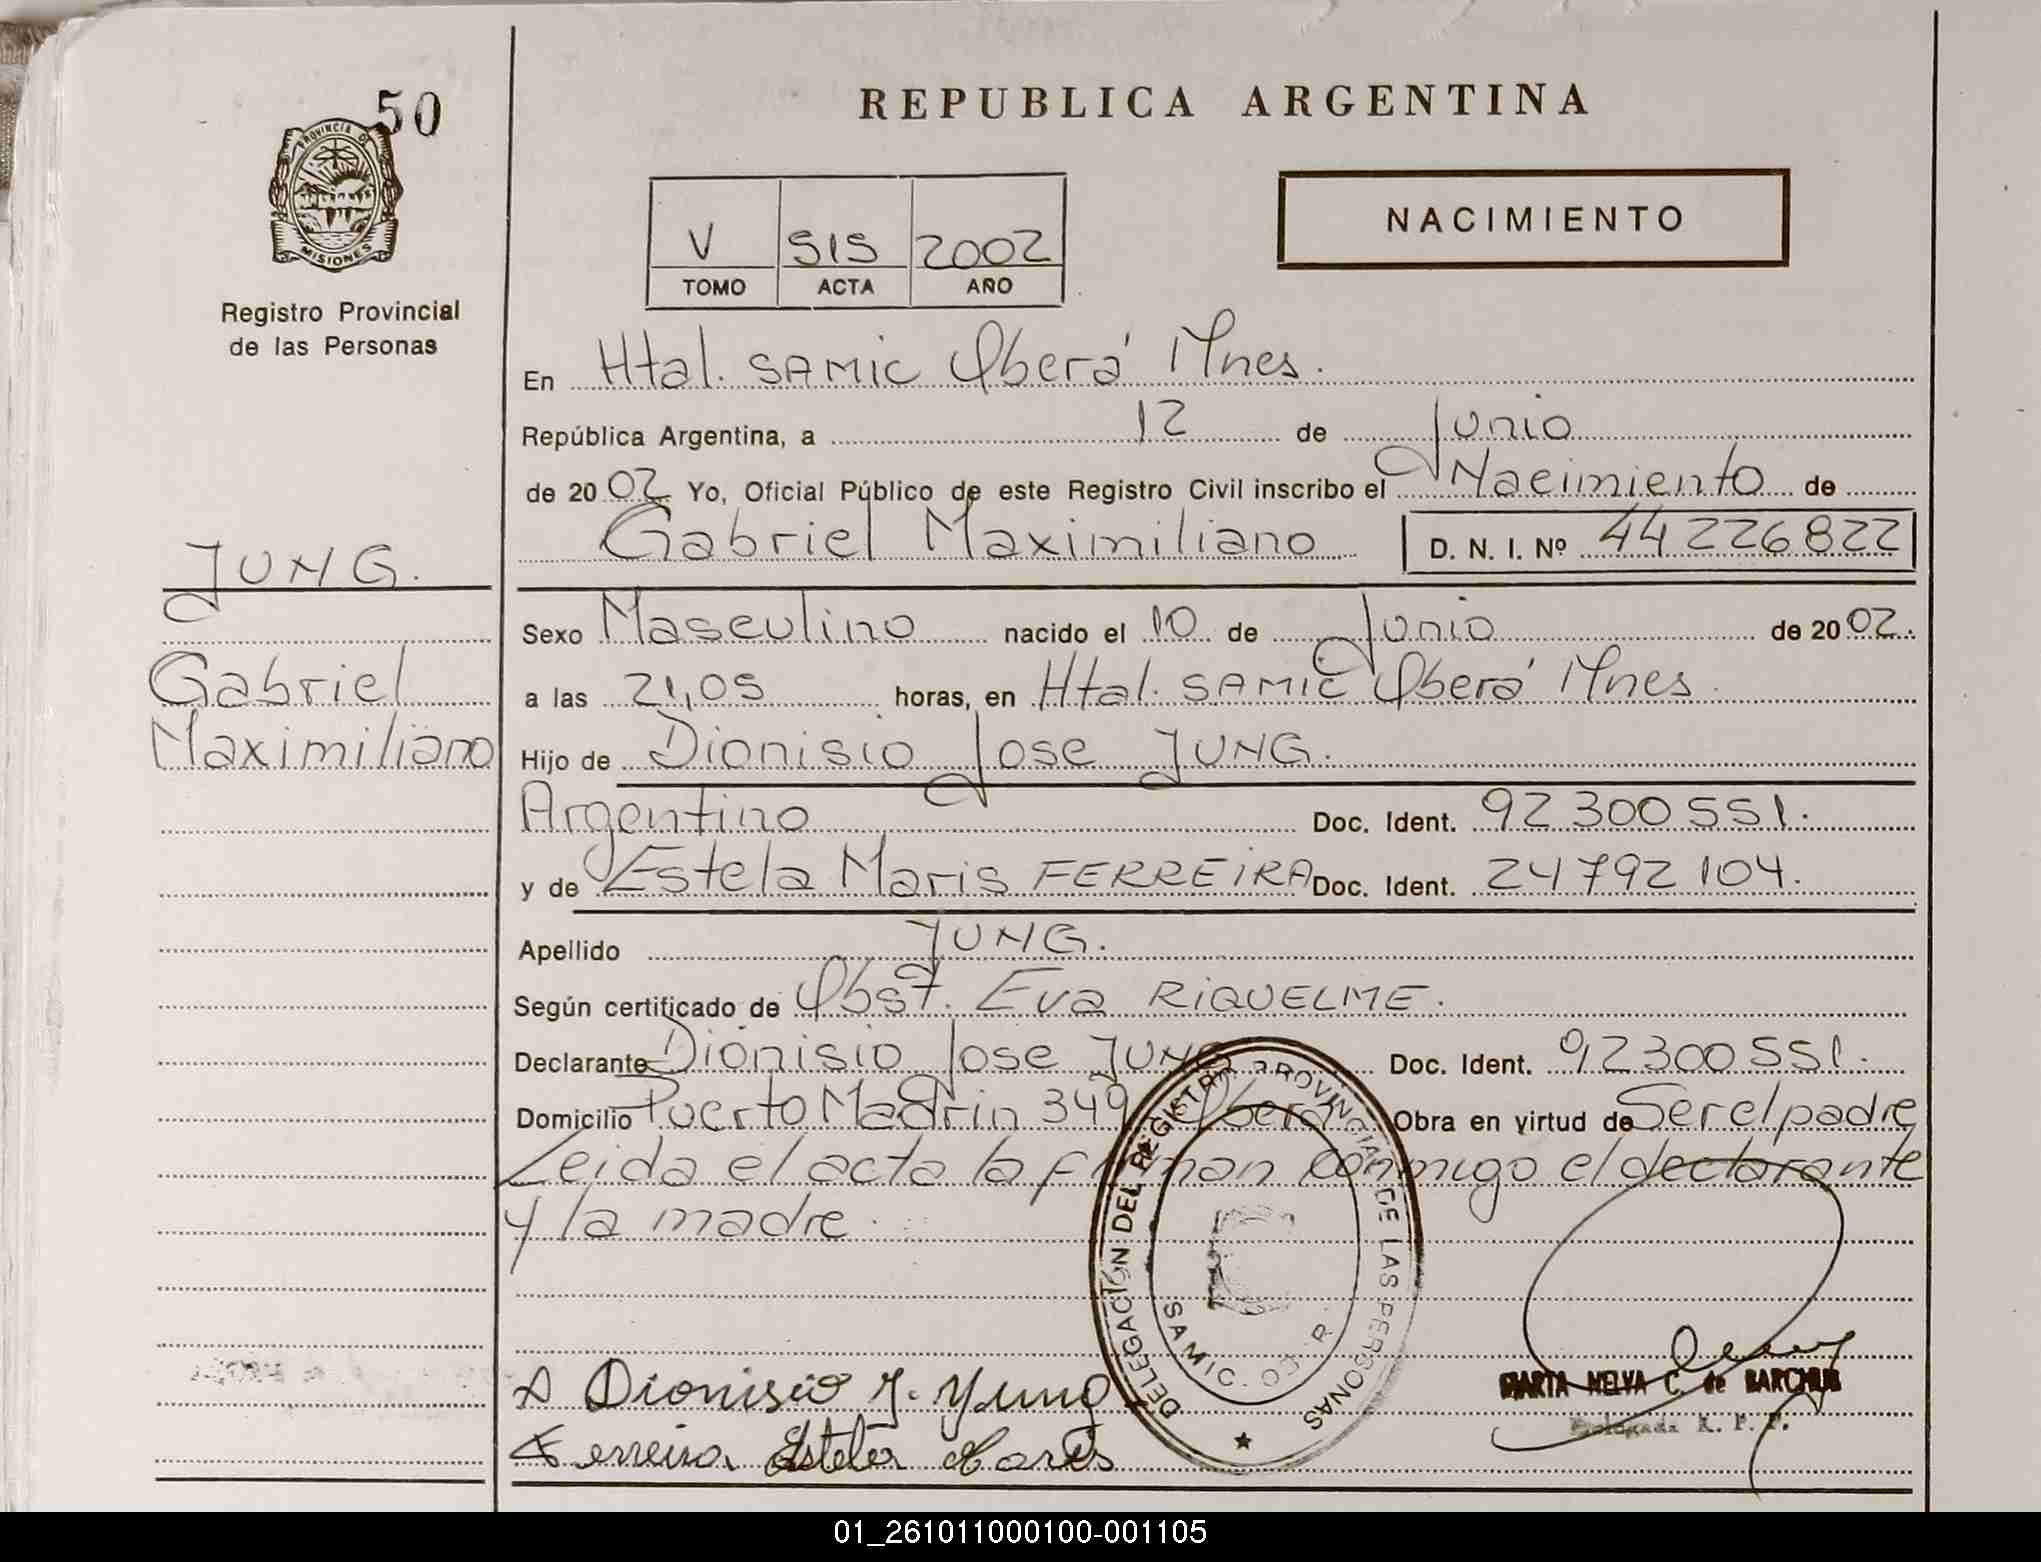 50
PROVINCIA DE MISIONES
Registro Provincial
de las Personas
REPUBLICA ARGENTINA
V 515 2002
TOMO ACTA AÑO
NACIMIENTO
En Htal. SAMIC Oberá Mnes.
República Argentina, a 12 de Junio
de 2002 Yo, Oficial Público de este Registro Civil inscribo el Nacimiento de
Gabriel Maximiliano D. N. I. Nº 44 226 822
JUNG.
Gabriel
Maximiliano
Sexo Masculino nacido el 10 de Junio de 2002.
a las 21,05 horas, en Htal. SAMIC Oberá Mnes.
Hijo de Dionisio Jose JUNG.
Argentino Doc. Ident. 92 300 551.
y de Estela Maris FERREIRA Doc. Ident. 24 792 104.
Apellido JUNG.
Según certificado de Obst. Eva RIQUELME.
Declarante Dionisio Jose JUNG Doc. Ident. 92300551.
Domicilio Puerto Madrin 349 Oberá Obra en virtud de Ser el padre
Leida el acta la firman conmigo el declarante
y la madre.
DELEGACIÓN DEL REGISTRO PROVINCIAL DE LAS PERSONAS
SAMIC.
Dionisio J. Yung
Ferreira Estela Maris
MARTA MELVA C. de
R. P. P.
01_261011000100-001105